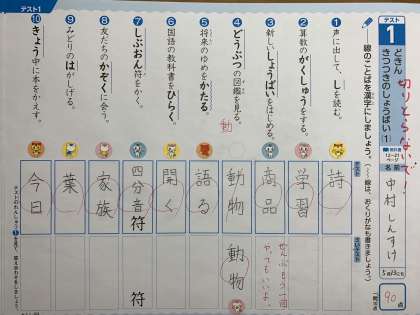 テスト1
テスト
1
どきん
きつつきのしょうばい
1
教科書
12~31
ページ
名前
中村しんすけ
5月13日
90点
切りとらないで!
――線のことばを漢字にしましょう。(〰〰線は、おくりがなも書きましょう。)
①声に出して、しを読む。
②算数のがくしゅうをする。
③新しいしょうばいをはじめる。
④どうぶつの図鑑を見る。
⑤将来のゆめをかたる。
⑥国語の教科書をひらく。
⑦しぶおん符をかく。
⑧友だちのかぞくに会う。
⑨みどりのはがしげる。
⑩きょう中に本をかえす。
動
テスト
詩
学習
商品
動物
語る
開く
四分音符
家族
葉
今日
ぜんぶもう一回
やってもいいよ。
動物
符